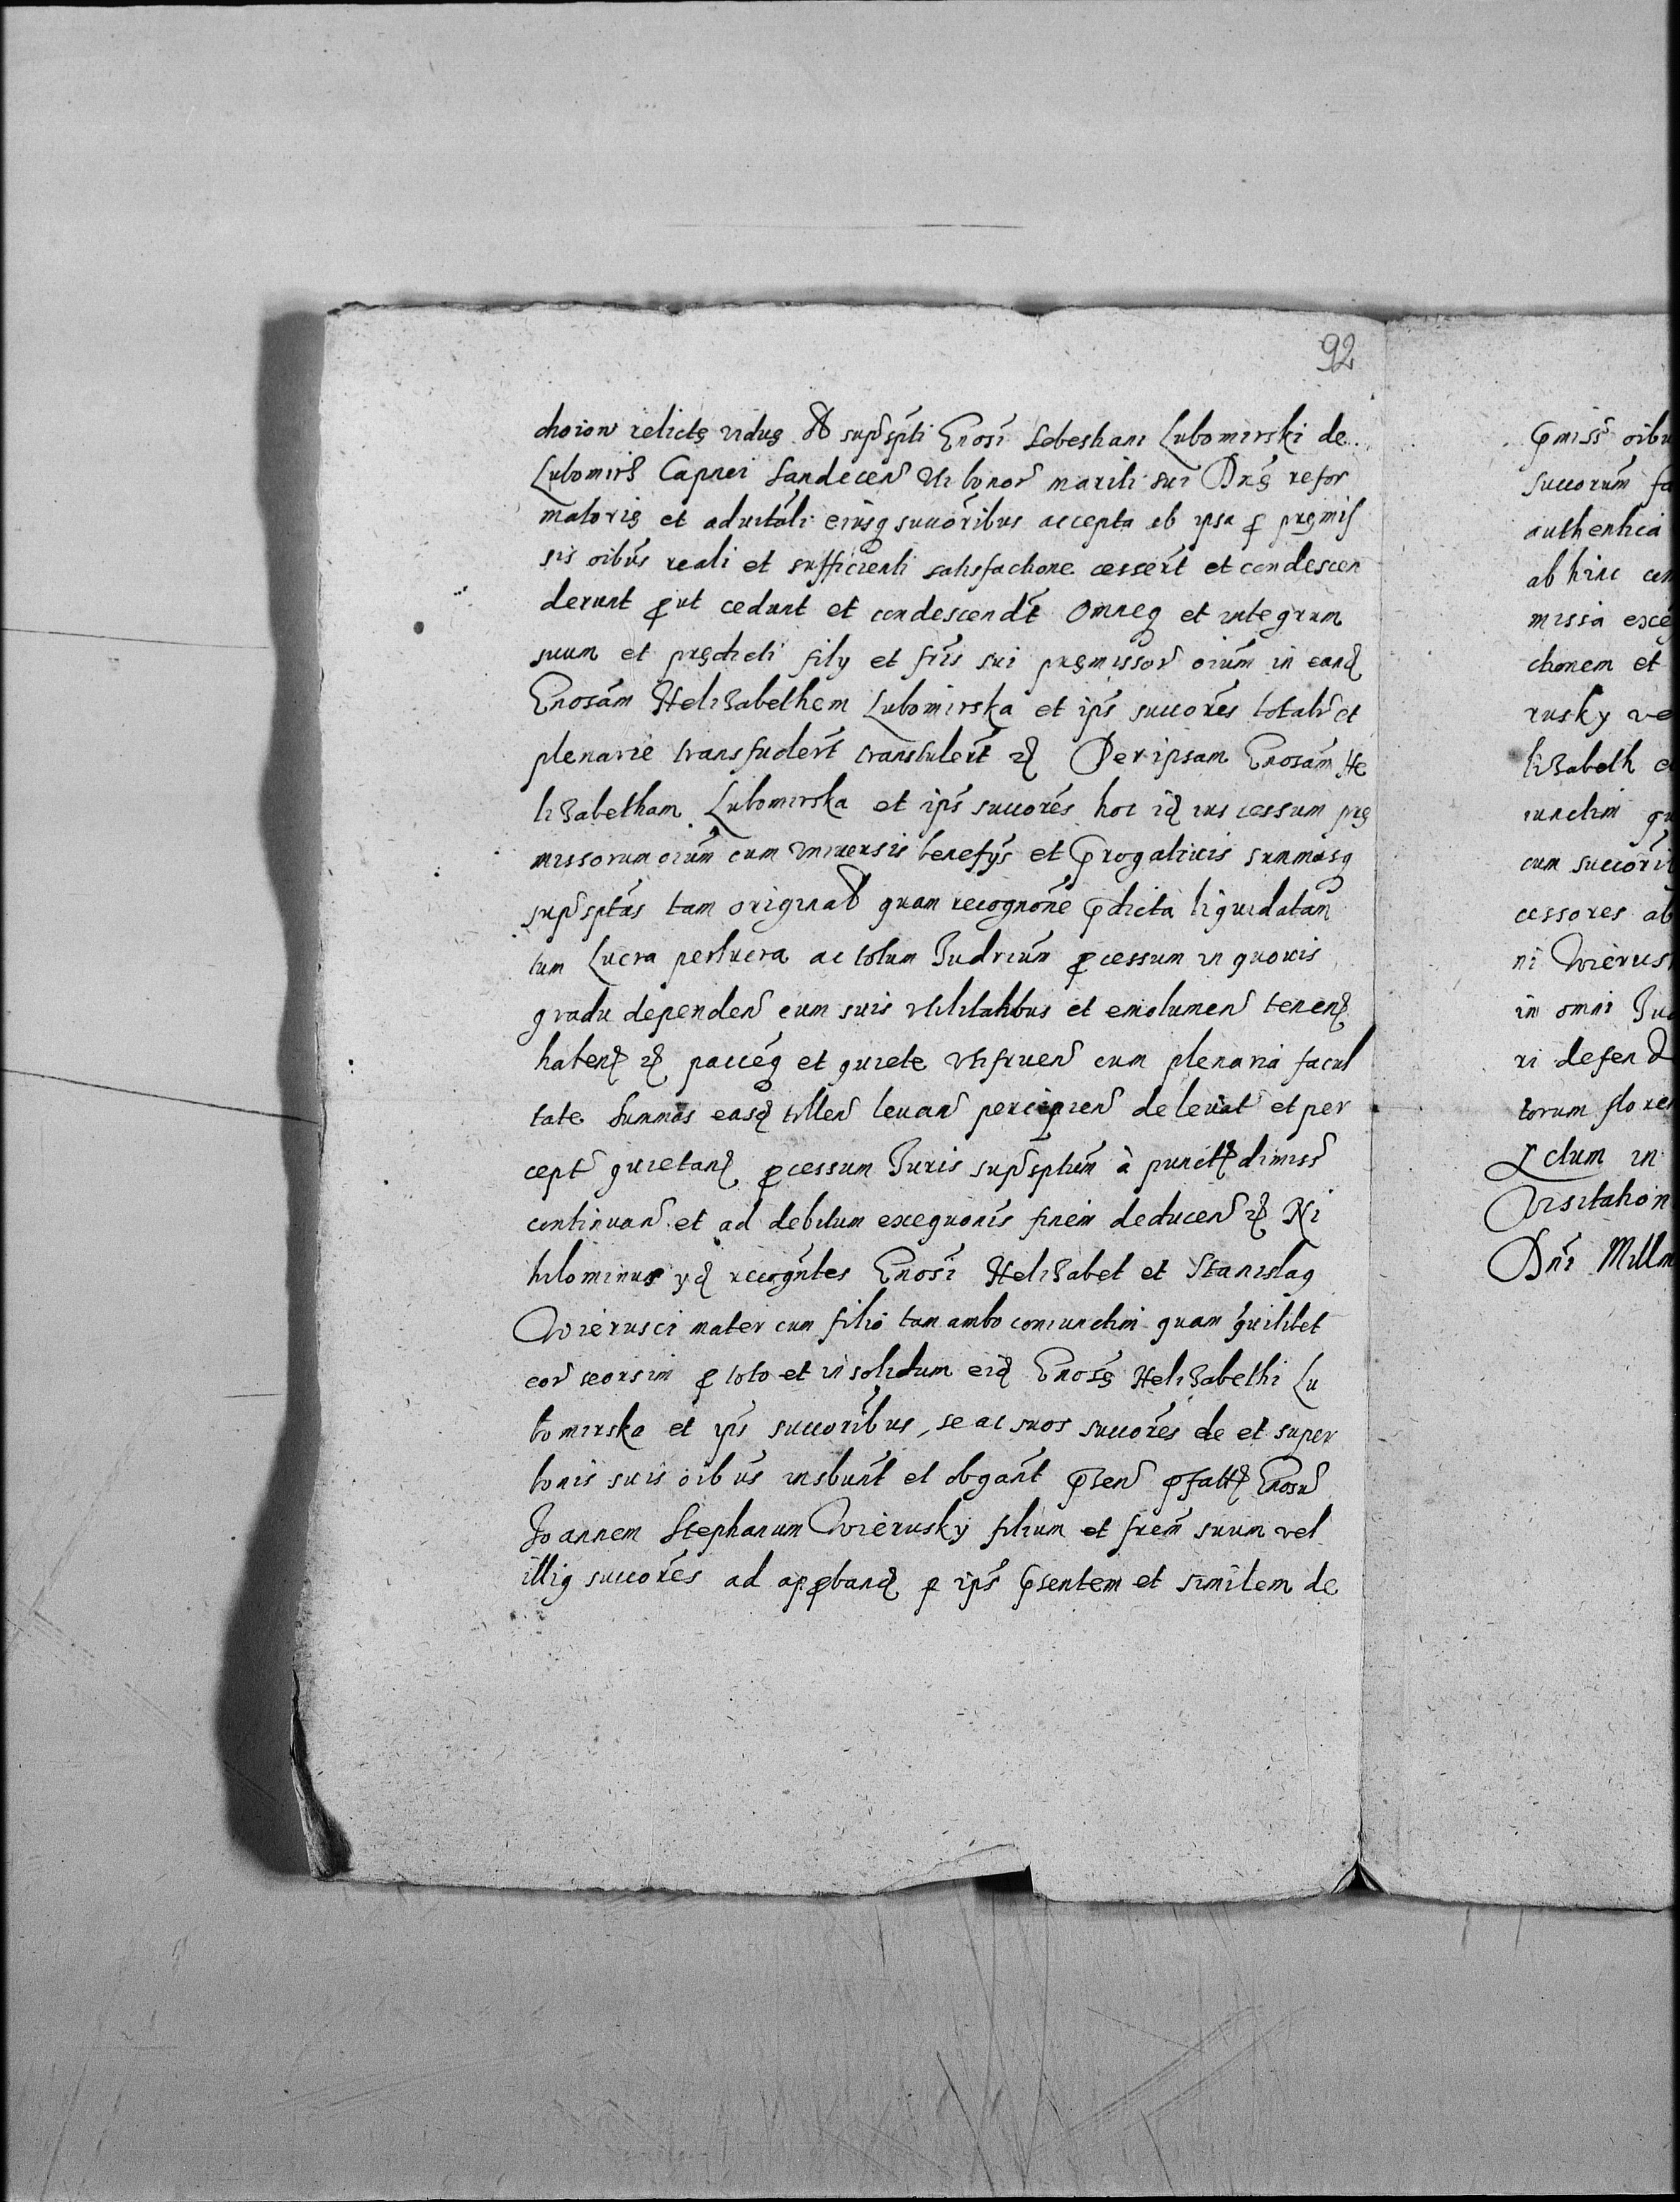 92
choiow relictę viduę ad supsptī Gnosī Sebestiani Lubomirski de
Lubomirz Capnei Sandecen Vti bonor mariti sui Dnę refor
matorię et aduitāli eiusq succōribus accepta ab ipsa p pręmis
sis oibūs reali et sufficienti satisfactione cessert̄ et condescen
derunt put cedunt et condescendt̄ omneq et integrum
suum et prędicti filij et frīs sui pręmissor oium̄ in eand
Gnosām Helizabethem Lubomirska et ipīs succorēs totalr et
plenarie transfudert̄ transtulert̄ etc Per ipsam Gnosām He
lizabetham Lubomirska et ipīs succorēs hoc id ius cessum prę
missorum oium̄ cum vniuersis benefijs et progatiuis summasq
supsptās tam original quam recognonē pdicta liquidatam
tum Lucra perlucra ac totum Judrium̄ pcessum in quouis
gradu dependen cum suis vtilitatibus et emolumen tenend
habend etc pacceq et quiete vtifruen cum plenaria facul
tate Summas easd tollen leuan percipien deleuat et per
cept quietand pcessum Juris supsptum̄ à punct dimiss
continuan et ad debitum exequonīs finem deducen etc Ni
hilominus yd recogntēs Gnosī Helizabet et Stanislaq
Wierusci mater cum filio tam ambo coniunctim quam quilibet
eor seorsim p toto et in solidum eid Gnosę Helizabethi Lu
bomirska et ipīs succorībus, se ac suos succorēs de et super
bonis suis oibūs insbunt̄ et obgant̄ psen pfatt Gnosu
Joannem Stephanum Wierusky filium et frem̄ suum vel
illiq succorēs ad appband p ipīs psentem et similem de
pmiss oibu
succorum fa
authentica
ab hinc con
missa exce
ctionem et
rusky ve
lizabeth e
iunctim qu
cum succori
cessores ab
ni Wierus
in omni Jud
ri defend
torum floren
Actum in
Visitation
Dnī Millm